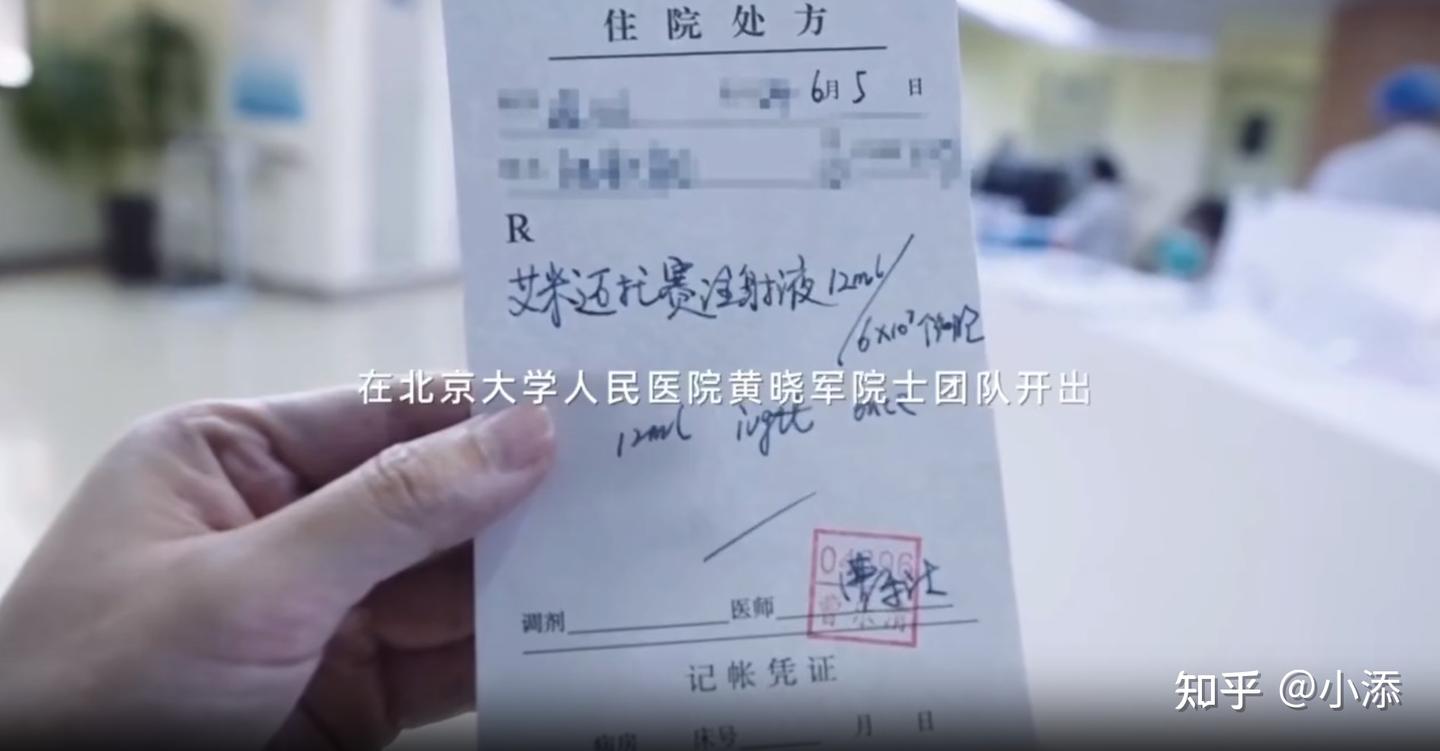 住院处方
6月5日
R
艾米迈托赛注射液12ml/
6×10⁷个细胞
在北京大学人民医院黄晓军院士团队开出
12ml ivgtt once
调剂 医师
记帐凭证
病房 床号 月 日
知乎 @小添